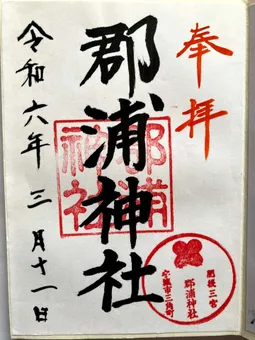 奉拝
郡浦神社
令和六年三月十一日
郡浦神社
肥後三宮
郡浦神社
宇城市三角町